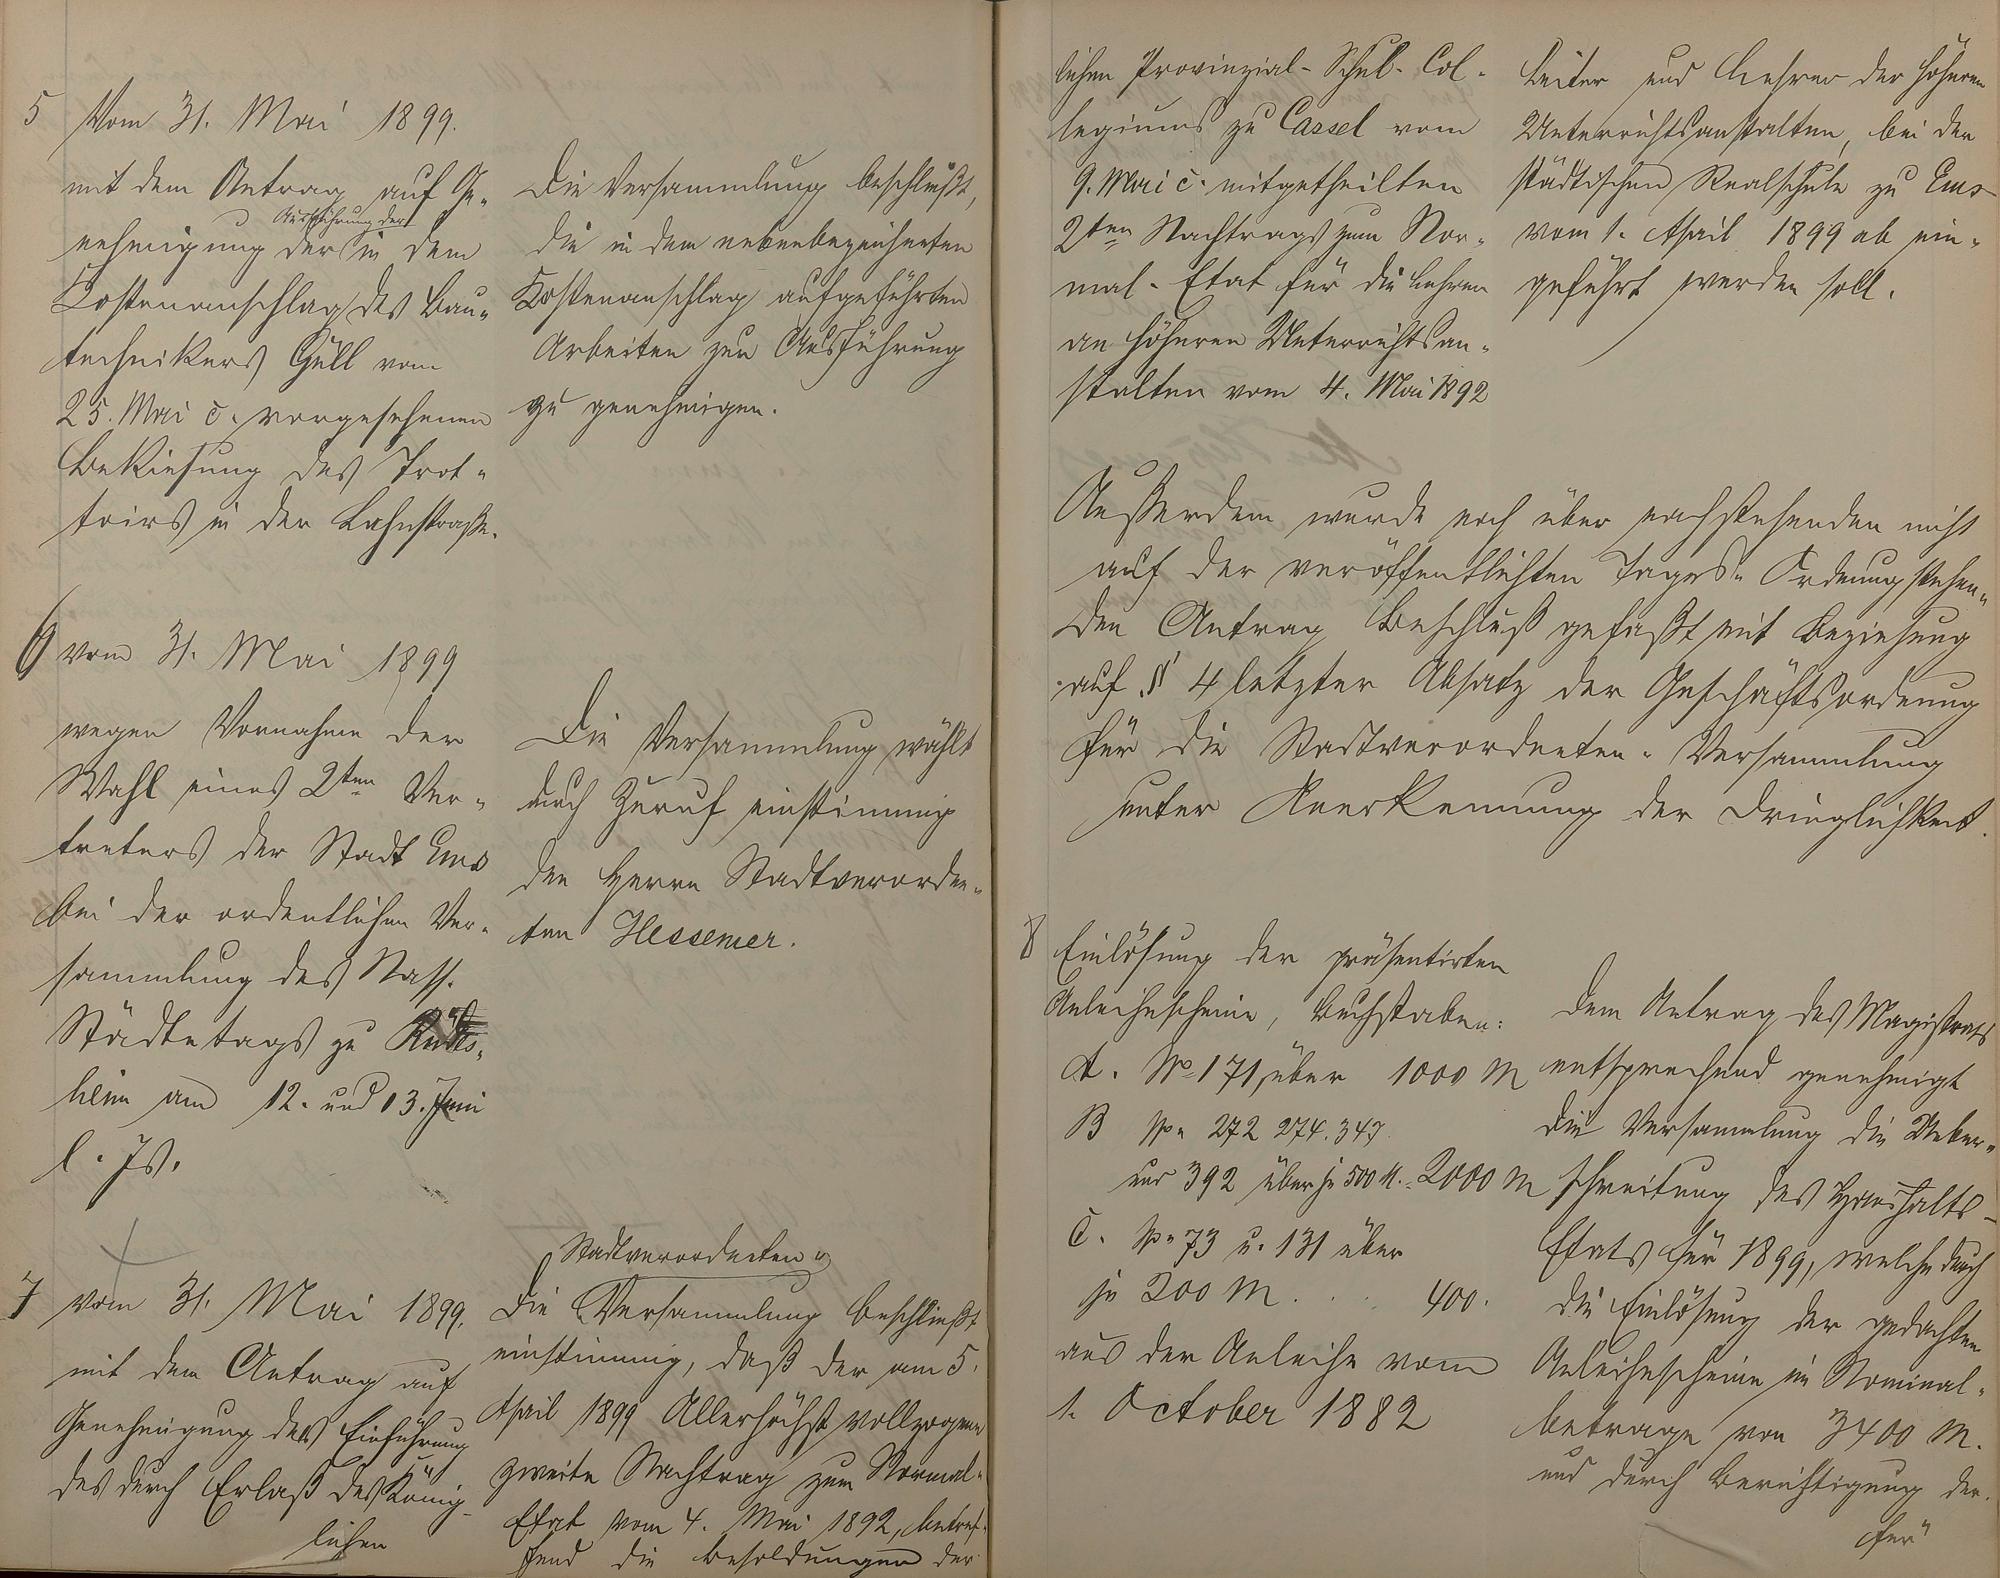 5 Vom 31. Mai 1899.
mit dem Antrag auf Ge-
Ausführung der
nehmigung der in dem
Kostenanschlag des Bau-
technikers Güll vom
25. Mai c. vorgesehenen
Bekiesung des Trot-
toirs in der Lahnstraße.
Die Versammlung beschließt,
die in dem nebenbezeichneten
Kostenanschlag aufgeführten
Arbeiten zur Ausführung
zu genehmigen.
6 vom 31. Mai 1899
wegen Vornahme der
Wahl eines 2ten Ver-
treters der Stadt Ems
bei der ordentlichen Ver-
sammlung des Nass.
Städtetags zu Rüdes-
heim am 12. und 13. Juni
l. Js.
Die Versammlung wählt
durch Zuruf einstimmig
den Herrn Stadtverordne-
ten Hessemer.
7 vom 31. Mai 1899.
mit dem Antrag auf
Genehmigung der Einführung
des durch Erlaß des König-
lichen
Stadtverordneten-
Die Versammlung beschließt
einstimmig, daß der am 5.
April 1899 Allerhöchst vollzogene
zweite Nachtrag zum Normal-
Etat vom 4. Mai 1892, betref-
fend die Besoldungen der
lichen Provinzial-Schul-Col-
legiums zu Cassel vom
9. Mai c. mitgetheilten
2ten Nachtrags zum Nor-
mal-Etat für die Lehrer
an höheren Unterrichtsan-
stalten vom 4. Mai 1892
Leiter und Lehrer der höheren
Unterrichtsanstalten, bei der
städtischen Realschule zu Ems
vom 1. April 1899 ab ein-
geführt werden soll.
Außerdem wurde noch über nachstehenden nicht
auf der veröffentlichten Tages-Ordnung stehen-
den Antrag Beschluß gefaßt mit Beziehung
auf § 4 letzter Absatz der Geschäftsordnung
für die Stadtverordneten-Versammlung
unter Anerkennung der Dringlichkeit.
8 Einlösung der präsentirten
Anleihescheine, Buchstaben:
A. No 171, über 1000 M
B No 272 274. 347.
und 392 über je 500 M. = 2000 M
C. No 73 u. 131 über
je 200 M . . . 400.
aus der Anleihe vom
1. October 1882
Dem Antrag des Magistrats
entsprechend genehmigt
die Versammlung die Ueber-
schreitung des Haushalts-
Etats für 1899, welche durch
die Einlösung der gedachten
Anleihescheine im Nominal-
betrage von 3400 M.
und durch Berichtigung der